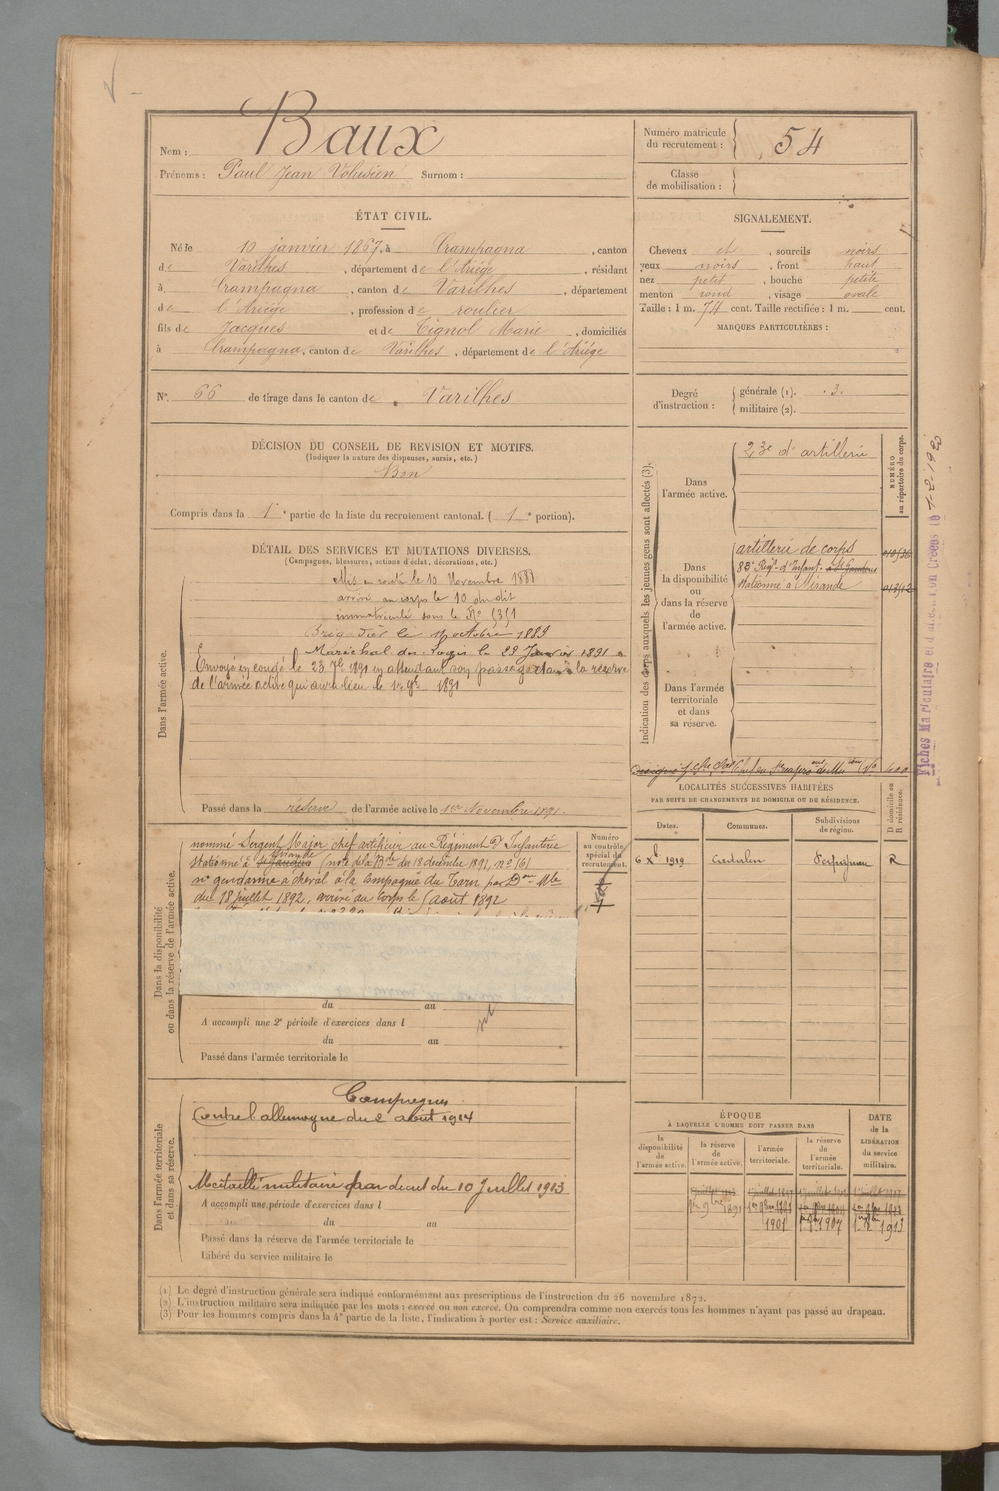 Nom : Baux
Prénoms : Paul Jean Volusien Surnom :
Numéro matricule du recrutement : 54
Classe de mobilisation :
ÉTAT CIVIL.
Né le 10 janvier 1867, à Crampagna, canton
de Varilhes, département de l'Ariége, résidant
à Crampagna, canton de Varilhes, département
de l'Ariége, profession de roulier
fils de Jacques et de Tignol Marie, domiciliés
à Crampagna, canton de Varilhes, département de l'Ariége
SIGNALEMENT.
Cheveux et, sourcils noirs
yeux noirs, front haut
nez petit, bouche petite
menton rond, visage ovale
Taille : 1 m. 74 cent. Taille rectifiée : 1 m. cent.
MARQUES PARTICULIÈRES :
N° 66 de tirage dans le canton de Varilhes
Degré d'instruction : générale (1). 3.
militaire (2).
DÉCISION DU CONSEIL DE REVISION ET MOTIFS.
(Indiquer la nature des dispenses, sursis, etc.)
Bon
Compris dans la 1e partie de la liste du recrutement cantonal. (1e portion).
DÉTAIL DES SERVICES ET MUTATIONS DIVERSES.
(Campagnes, blessures, actions d'éclat, décorations, etc.)
Dans l'armée active.
Mis en route le 10 Novembre 188
arrivé au corps le 10 du dit
immatriculé sous le N°
Brigadier le octobre 1889
Maréchal des logis le 29 Janvier 1891
Envoyé en congé le 23 7bre 1891 en attendant son passage dans la réserve
de l'armée active qui aura lieu le 1er 9bre 1891
Passé dans la réserve de l'armée active le 1er Novembre 1891.
Indication des corps auxquels les jeunes gens sont affectés (3).
NUMÉRO au répertoire du corps.
Dans l'armée active.
23e d'artillerie
Dans la disponibilité ou dans la réserve de l'armée active.
artillerie de corps
83e Régt d'Infant. à St Gaudens
stationné à Mirande
Dans l'armée territoriale et dans sa réserve.
Fiches Matriculaire et d
LOCALITÉS SUCCESSIVES HABITÉES
PAR SUITE DE CHANGEMENTS DE DOMICILE OU DE RÉSIDENCE.
Dates.
Communes.
Subdivisions de région.
D domicile ou R résidence.
6 Xbre 1919
Perpignan
R
Dans la disponibilité ou dans la réserve de l'armée active.
Numéro au contrôle spécial du recrutement.
nommé Sergent Major chef artificier au Régiment d'Infanterie
stationné à St Gaudens Mirande (note de la Bde du 18 décembre 1891, n° 161
n° gendarme à cheval à la compagnie du Tarn par Don Mle
du 18 juillet 1892, arrivé au corps le 5 août 1892
du au
A accompli une 2e période d'exercices dans l
du au
Passé dans l'armée territoriale le
Dans l'armée territoriale et dans sa réserve.
Campagnes
Contre l'allemagne du 2 août 1914
Médaillé militaire par decret du 10 Juillet 1913
A accompli une période d'exercices dans l
du au
Passé dans la réserve de l'armée territoriale le
Libéré du service militaire le
ÉPOQUE
À LAQUELLE L'HOMME DOIT PASSER DANS
la disponibilité de l'armée active.
la réserve de l'armée active.
l'armée territoriale.
la réserve de l'armée territoriale.
DATE de la LIBÉRATION du service militaire.
1er 9bre 1891
1901
1907
1913
(1) Le degré d'instruction générale sera indiqué conformément aux prescriptions de l'instruction du 26 novembre 1872.
(2) L'instruction militaire sera indiquée par les mots : exercé ou non exercé. On comprendra comme non exercés tous les hommes n'ayant pas passé au drapeau.
(3) Pour les hommes compris dans la 4e partie de la liste, l'indication à porter est : Service auxiliaire.